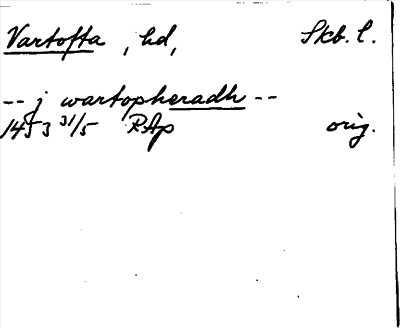 Vartofta, hd, Skb. l.
-- j wartopheradh --
1453 31/5 RAp orig.